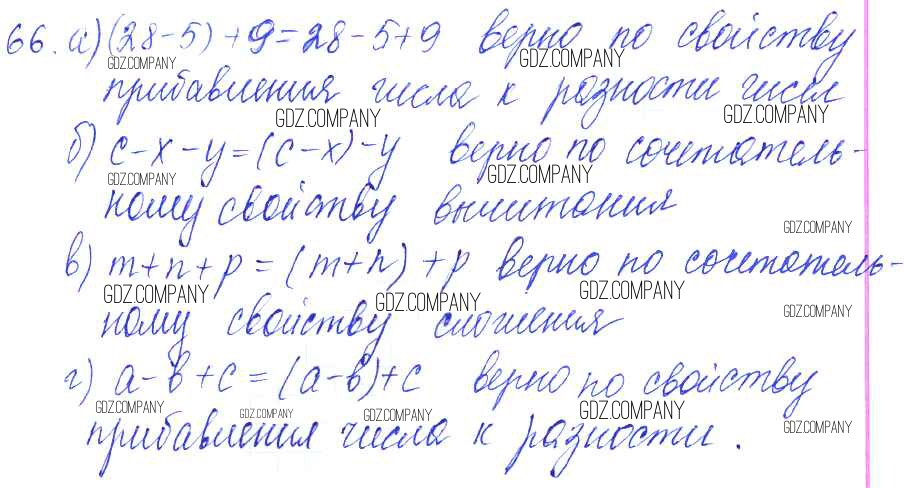 66. а) (28-5)+9=28-5+9 верно по свойству
GDZ.COMPANY GDZ.COMPANY
прибавления числа к разности чисел
GDZ.COMPANY GDZ.COMPANY
б) с-х-у=(с-х)-у верно по сочетатель-
GDZ.COMPANY GDZ.COMPANY
ному свойству вычитания
GDZ.COMPANY
в) m+n+p=(m+n)+p верно по сочетатель-
GDZ.COMPANY GDZ.COMPANY GDZ.COMPANY
ному свойству сложения
GDZ.COMPANY
г) а-в+с=(а-в)+с верно по свойству
GDZ.COMPANY GDZ.COMPANY GDZ.COMPANY GDZ.COMPANY GDZ.COMPANY
прибавления числа к разности.